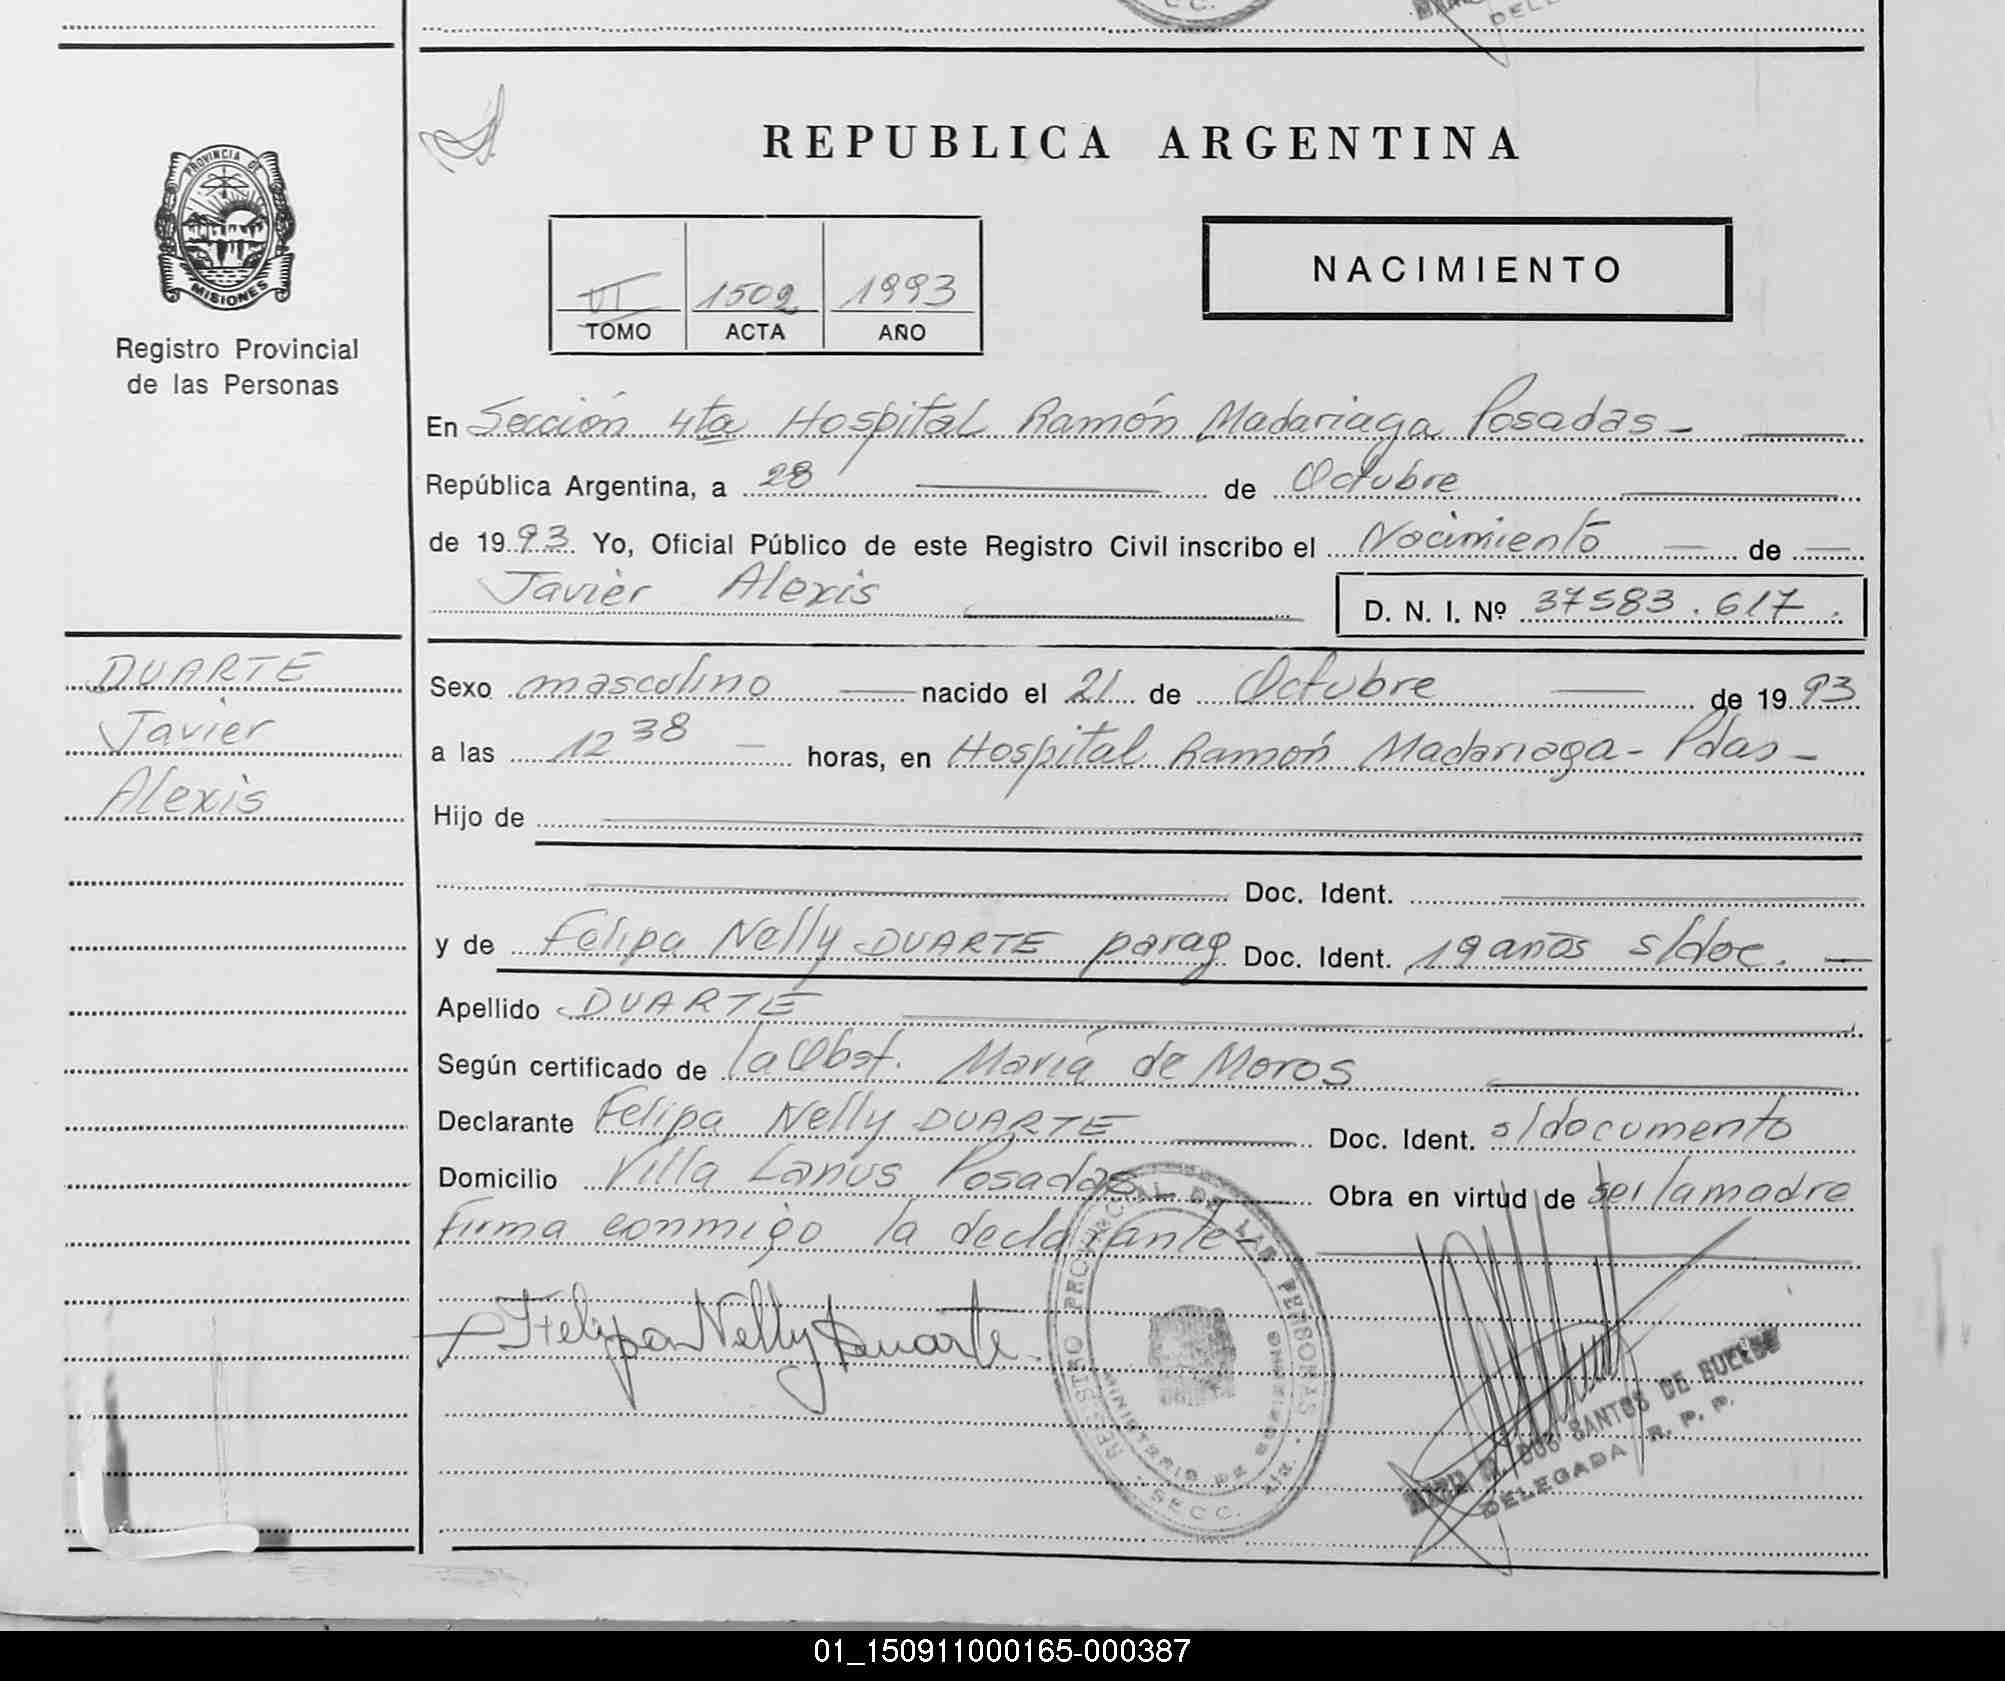 PROVINCIA DE
MISIONES
Registro Provincial
de las Personas
DUARTE
Javier
Alexis
REPUBLICA ARGENTINA
VI 1502 1993
TOMO ACTA AÑO
NACIMIENTO
En Sección 4ta Hospital Ramón Madariaga Posadas -
República Argentina, a 28 de Octubre
de 1993 Yo, Oficial Público de este Registro Civil inscribo el Nacimiento de
Javier Alexis D. N. I. Nº 37583.617.
Sexo masculino nacido el 21 de Octubre de 1993
a las 12 38 horas, en Hospital Ramón Madariaga - Pdas -
Hijo de
Doc. Ident.
y de Felipa Nelly DUARTE parag Doc. Ident. 19 años s/doc.
Apellido DUARTE
Según certificado de la Obst. María de Moros
Declarante Felipa Nelly DUARTE Doc. Ident. s/documento
Domicilio Villa Lanus Posadas Obra en virtud de ser la madre
firma conmigo la declarante-
Felipa Nelly Duarte
REGISTRO PROVINCIAL DE LAS PERSONAS
MINISTERIO DE GOBIERNO
SECC.
DOS SANTOS DE BUENO
DELEGADA R. P. P.
01_150911000165-000387